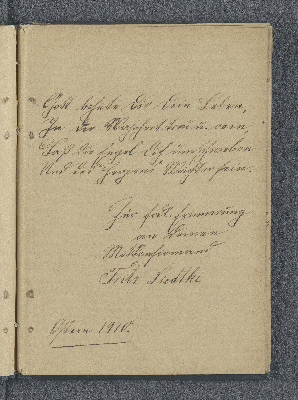 Gott behüte Dir Dein Leben,
In der Wahrheit treu u. rein,
Daß die Engel Dich umschweben
Und des Herzens Wächter sein.
Zur frdl. Erinnerung
an Deinen
Mitkonfirmand
Fritz Liedtke
Ostern 1910.